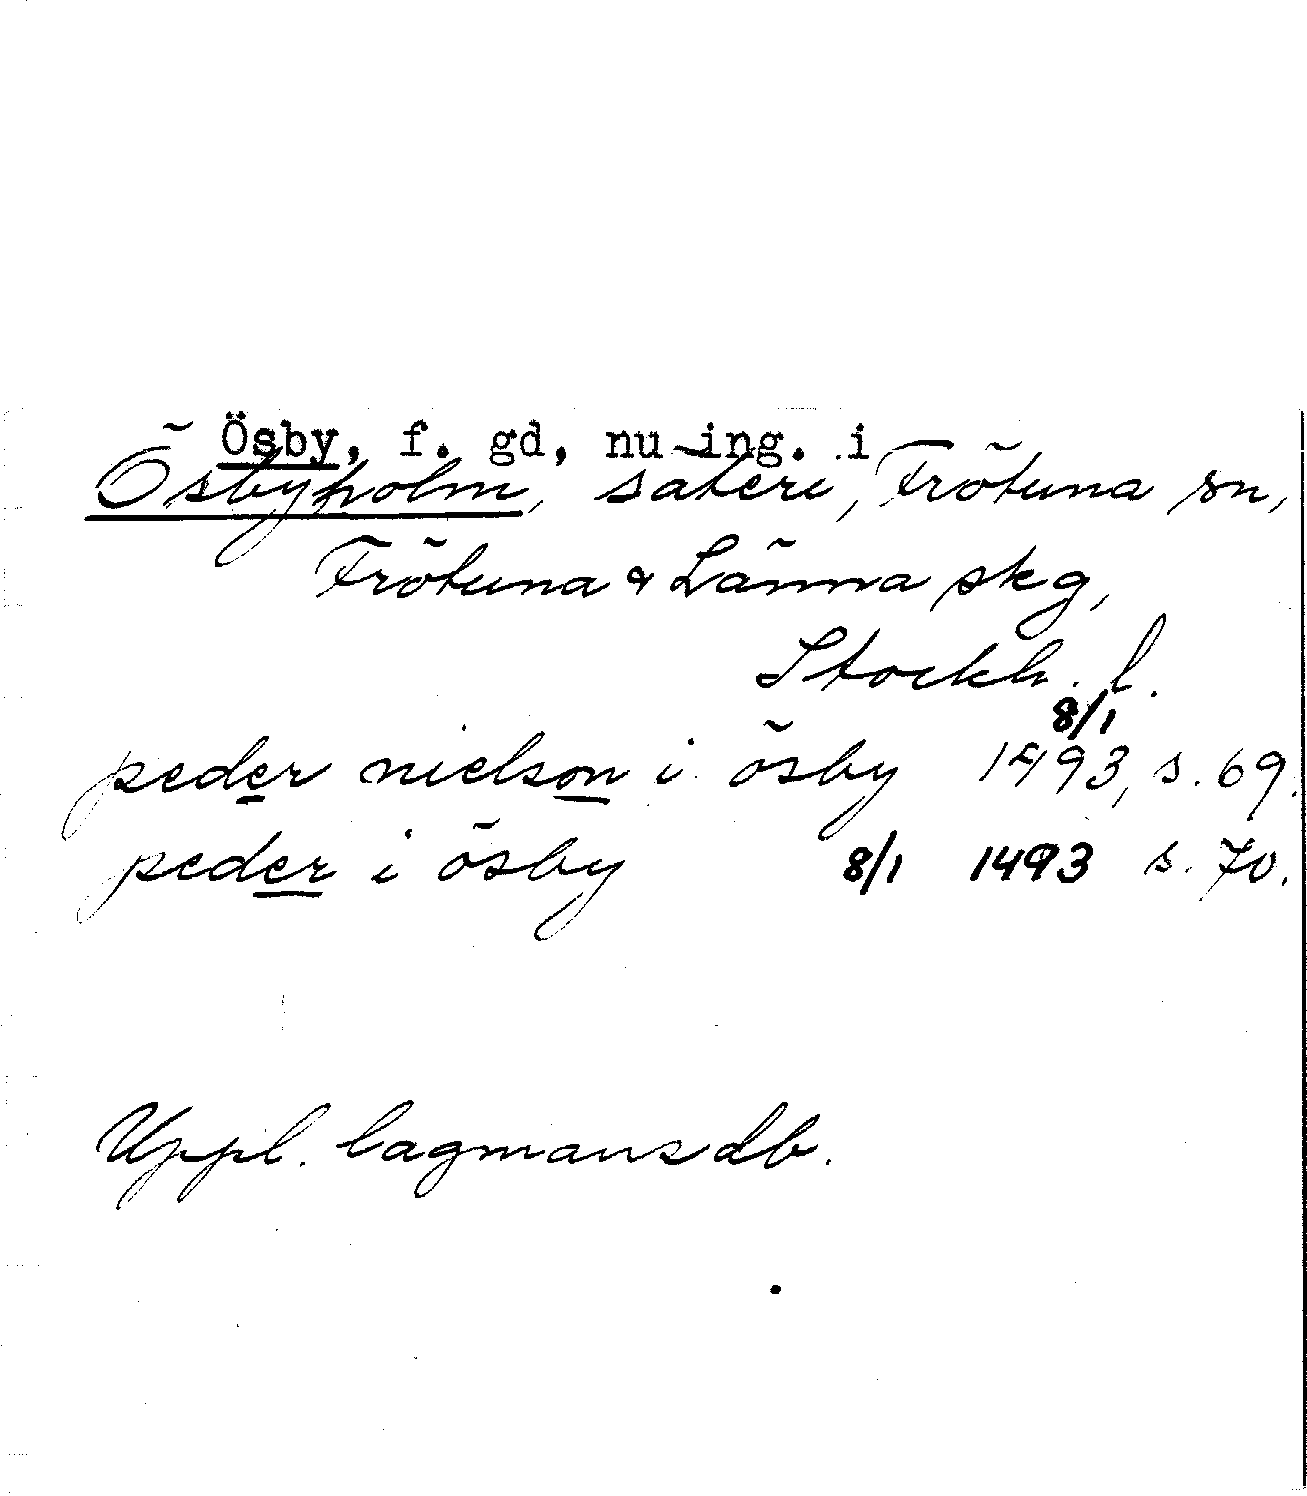 Ösby, f. gd, nu ing. i
Ösbyholm, säteri, Frötuna sn,
Frötuna & Länna skg,
Stockh. l.
8/1
peder nielson i ösby 1493, s. 69.
peder i ösby 8/1 1493 s. 70.
Uppl. lagmansdb.